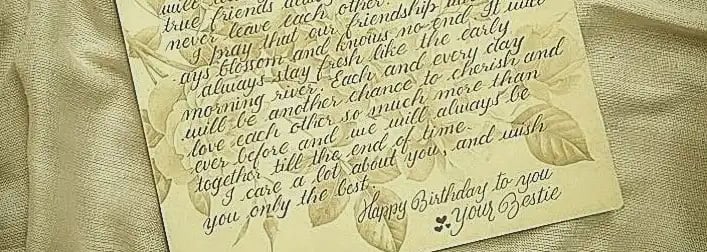 true friends
never leave each other.
I pray that our friendship
ays blossom and knows no end. It will
always stay fresh like the early
morning river. Each and every day
will be another chance to cherish and
love each other so much more than
ever before and we will always be
together till the end of time.
I care a lot about you, and wish
you only the best.
Happy Birthday to you
Your Bestie